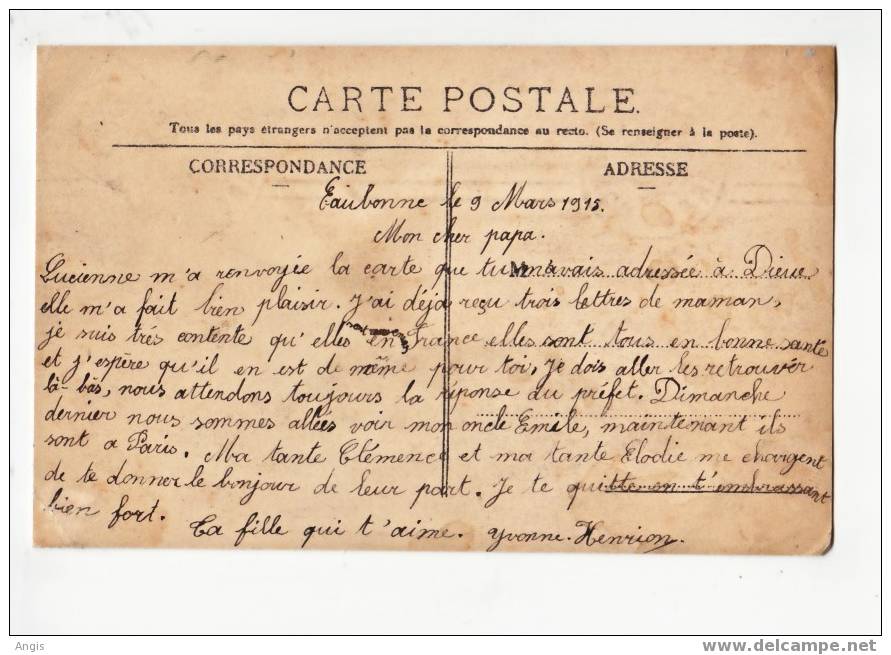 CARTE POSTALE.
Tous les pays étrangers n'acceptent pas la correspondance au recto. (Se renseigner à la poste).
CORRESPONDANCE ADRESSE
Eaubonne le 9 Mars 1915.
Mon cher papa.
Lucienne m'a renvoyée la carte que tu m'avais adressée à Dieue
elle m'a fait bien plaisir. J'ai déja reçu trois lettres de maman,
je suis trés contente qu'elles en France, elles sont tous en bonne santé
et j'espère qu'il en est de même pour toi, je dois aller les retrouver
là-bàs, nous attendons toujours la réponse du préfet. Dimanche
dernier nous sommes allées voir mon oncle Emile, maintenant ils
sont a Paris. Ma tante Clémence et ma tante Elodie me chargent
de te donner le bonjour de leur part. Je te quitte en t'embrassant
bien fort.
Ta fille qui t'aime. Yvonne. Henrion.
Angis
www.delcampe.net